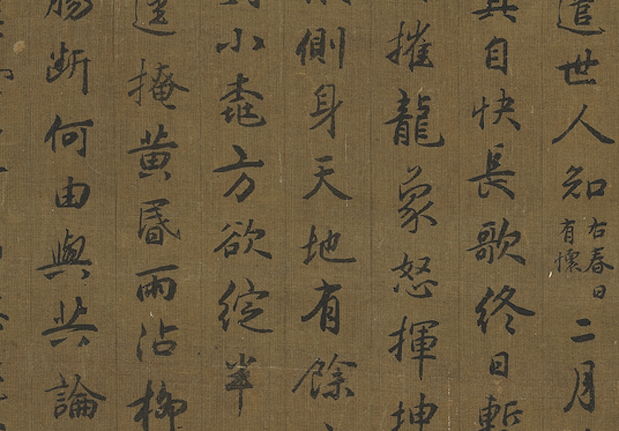 遣世人知
右春日
有懷
二月
自快長歌終日暫
摧龍象怒揮坤
側身天地有餘
小方欲綻
掩黃昏雨沾柳
腸斷何由與共論